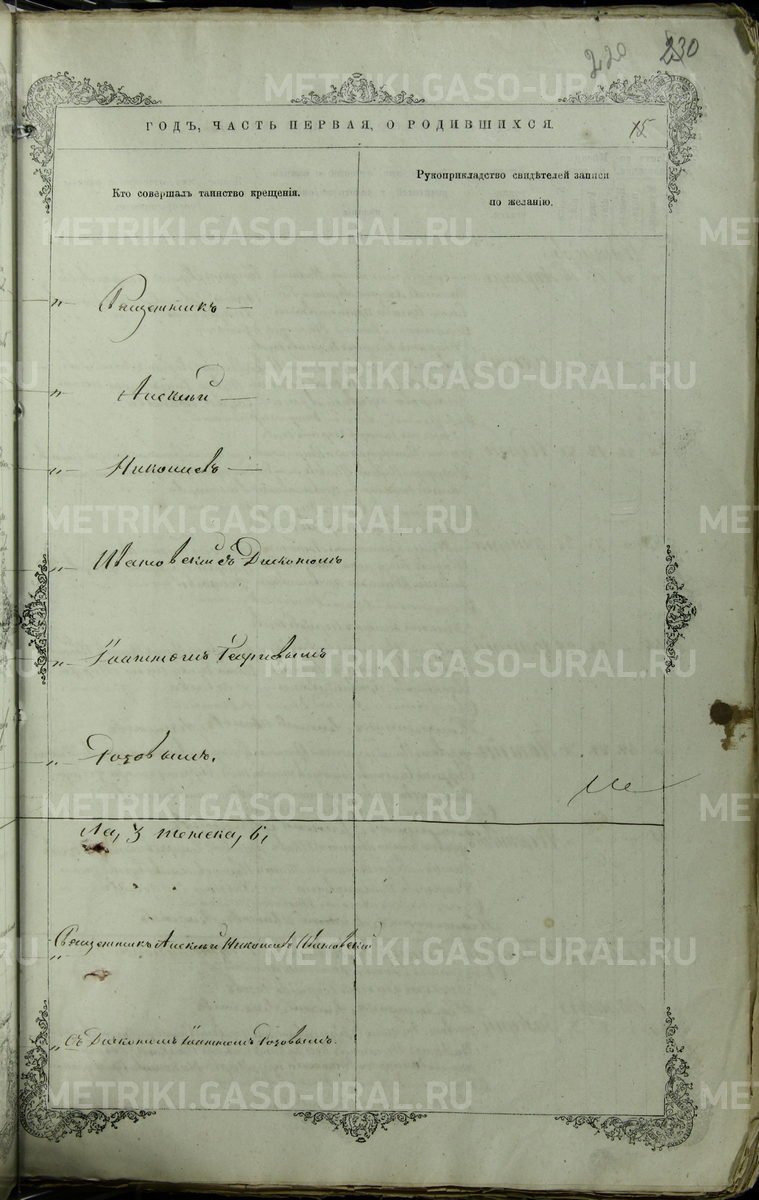 220 230
ГОДЪ, ЧАСТЬ ПЕРВАЯ, О РОДИВШИХСЯ.
15
Кто совершалъ таинство крещенія.
Рукоприкладство свидѣтелей записи
по желанію.
„ Священникъ —
„ Алексѣй —
„ Николаевъ —
„ Ивановскій съ Дьякономъ
„ Іоанномъ Георгіевымъ
„ Розовымъ.
женска, 6,
Священникъ Алексѣй Николаевъ Ивановскій
„ Съ Дьякономъ Іоанномъ Розовымъ.
METRIKI.GASO-URAL.RU